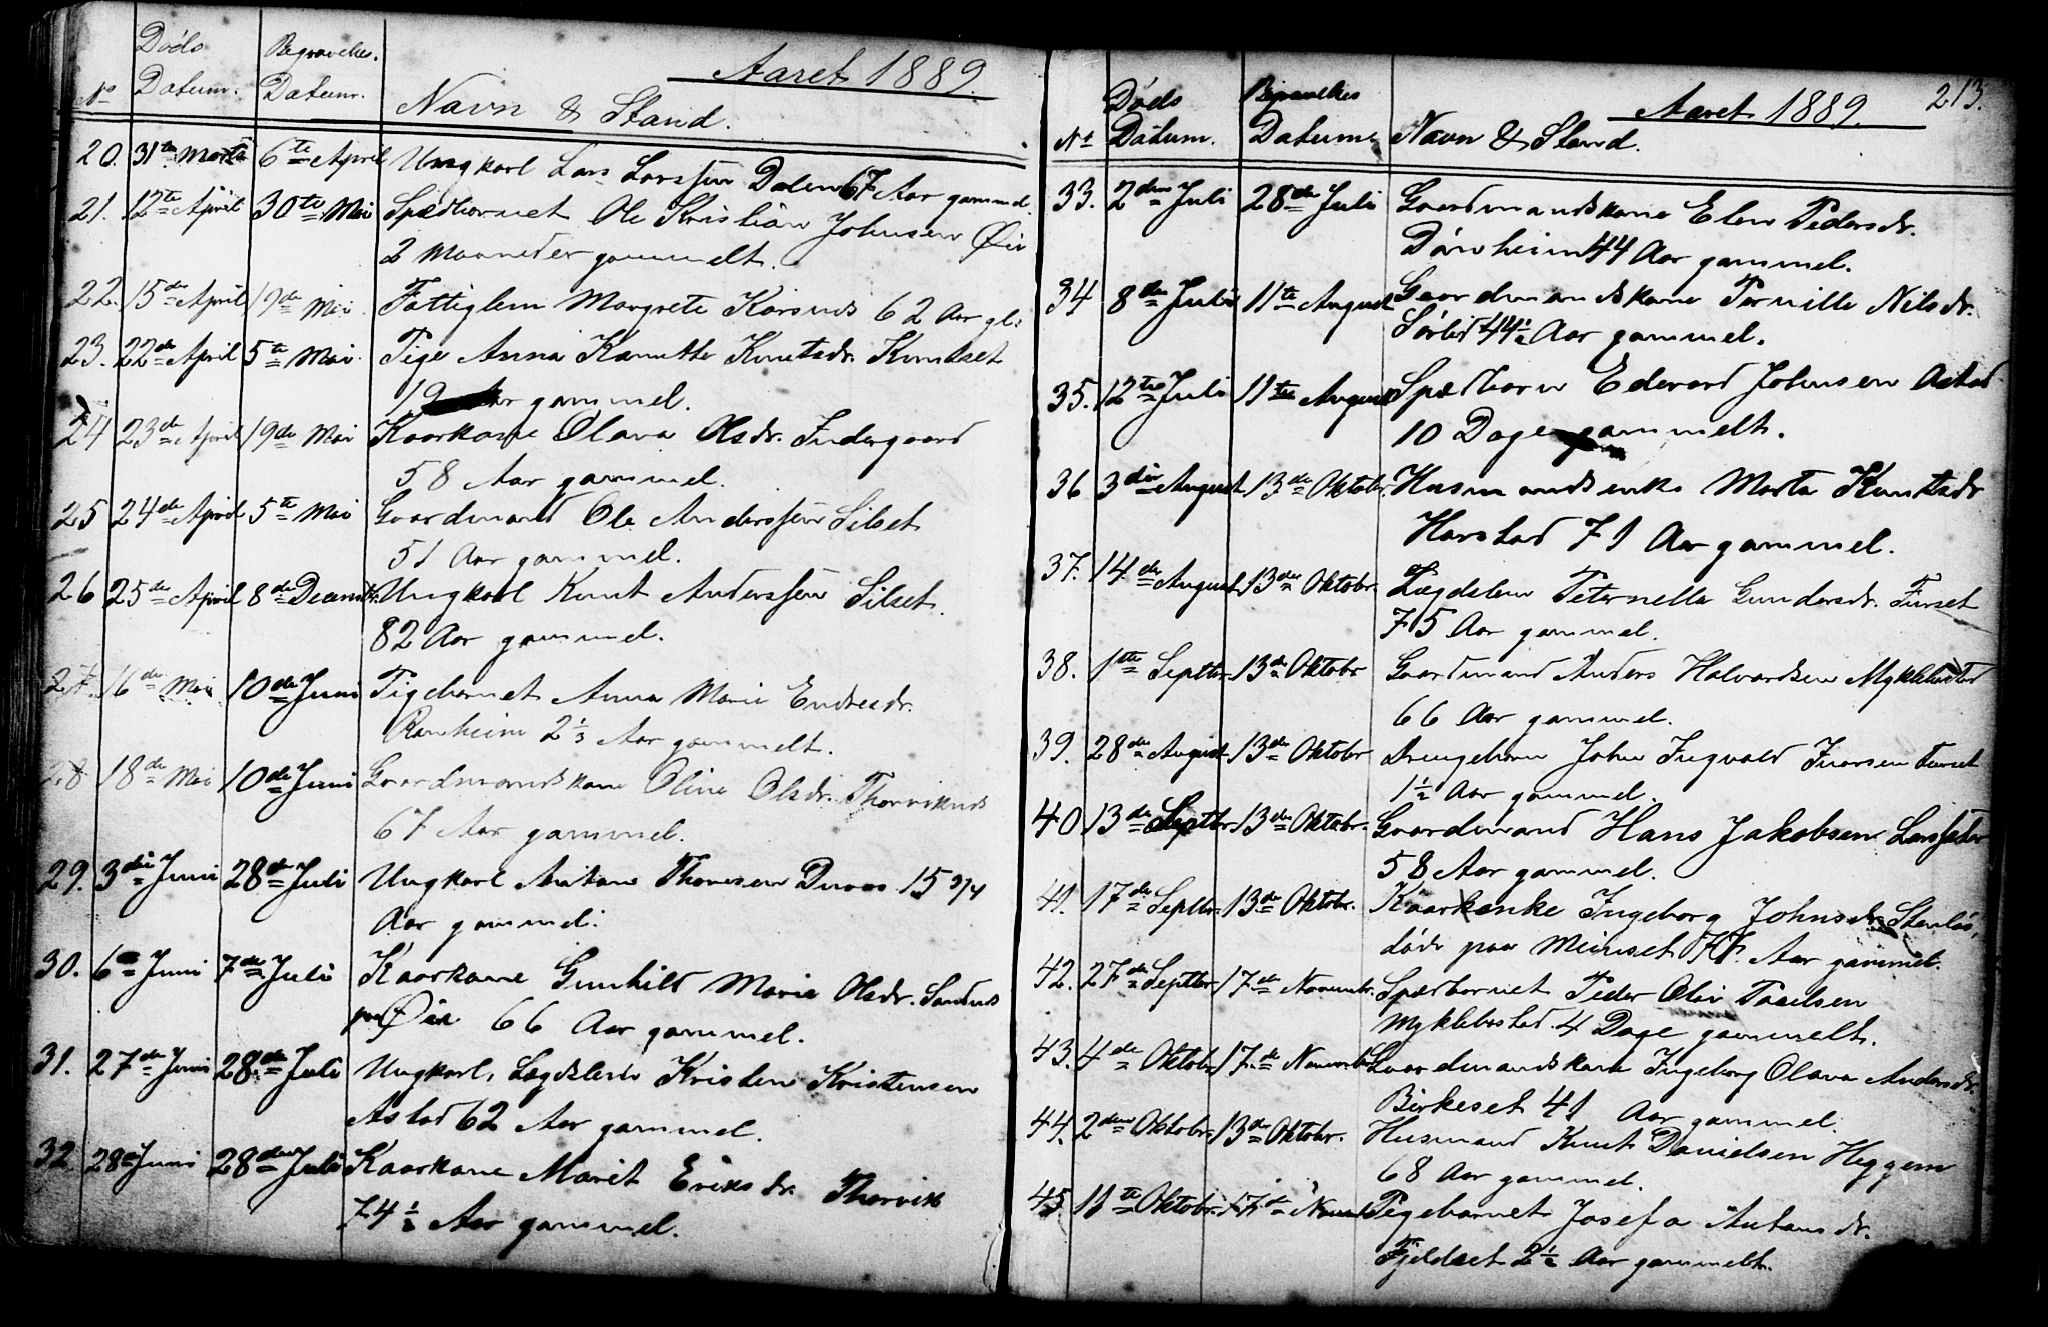 Aaret 1889.
No Døds Datum. Begravelses. Datum. Navn & Stand.
20. 31te Marts 6te April Ungkarl Lars Larssen Dalen 67 Aar gammel.
21. 12te April 30te Mai Spædbarnet Ole Kristian Johnsen Øie
2 Maaneder gammelt.
22. 15de April 19de Mai Fattiglem Margrete 62 Aar gl.
23. 22de April 5te Mai Pige Anna Knutsdr.
19 Aar gammel.
24 23de April 19de Mai Kaarkone Olava Olsdr. Indergaard
58 Aar gammel.
25 24de April 5te Mai Gaardmand Ole Anderssen Silset
51 Aar gammel.
26 25de April 8de Decembr. Ungkarl Knut Anderssen Silset.
82 Aar gammel.
27. 16de Mai 10de Juni Pigebarnet Anna Marie Endresdr.
Ranheim 2⅓ Aar gammelt.
28 18de Mai 10de Juni Gaardmandskone Oline Olsdr. Thorviknes
67 Aar gammel.
29. 3die Juni 28de Juli Ungkarl Anton Thoresen 15 3/4
Aar gammel.
30. 6te Juni 7de Juli Kaarkone Gunhild Marie Olsdr. Sandnes
paa Øie 66 Aar gammel.
31. 27de Juni 28de Juli Ungkarl, Lægdslem Kristen Kristensen
Astad 62 Aar gammel.
32. 28de Juni 28de Juli Kaarkone Marit Eriksdr. Thorvik
74½ Aar gammel.
213.
Aaret 1889.
No Døds Datum. Begravelses Datum Navn & Stand.
33. 2den Juli 28de Juli Gaardmandskone Elen Pedersdr.
44 Aar gammel.
34 8de Juli 11te August Gaardmandskone Pernille Nilsdr.
Sørlid 44½ Aar gammel.
35. 12te Juli 11te August Spædbarn Edvard Johnsen Astad
10 Dage gammelt.
36 3die August 13de Oktobr. Husmandsenke Marta Knutsdr
Harstad 71 Aar gammel.
37. 14de August 13de Oktobr. Lægdslem Peternelle Gundersdr. Furset
75 Aar gammel.
38. 1ste Septbr. 13de Oktobr Gaardmand Anders Halvordsen Myklebostad
66 Aar gammel.
39. 28de August 13de Oktobr Drengebarn John Ingvald Iversen Furset
1½ Aar gammel.
40 13de Septbr. 13de Oktobr. Gaardmand Hans Jakobsen Larssæter
58 Aar gammel.
41. 17de Septbr. 13de Oktobr. Kaarkenke Ingeborg Johnsdr. Stenløs,
døde paa Meinset Aar gammel.
42. 27de Septbr. 17de Novembr. Spædbarnet Peder Oliv Paulsen
Myklebostad. 4 Dage gammelt.
43. 4de Oktobr. 17de Novembr Gaardmandskone Ingeborg Olava Andersdr.
Birkeset 41 Aar gammel.
44. 2den Oktobr. 13de Oktobr. Husmand Knut Danielsen Heggem
68 Aar gammel.
45 11te Oktobr. 17de Novembr Pigebarnet Josefa Antonsdr.
Fjeldset 2½ Aar gammelt.